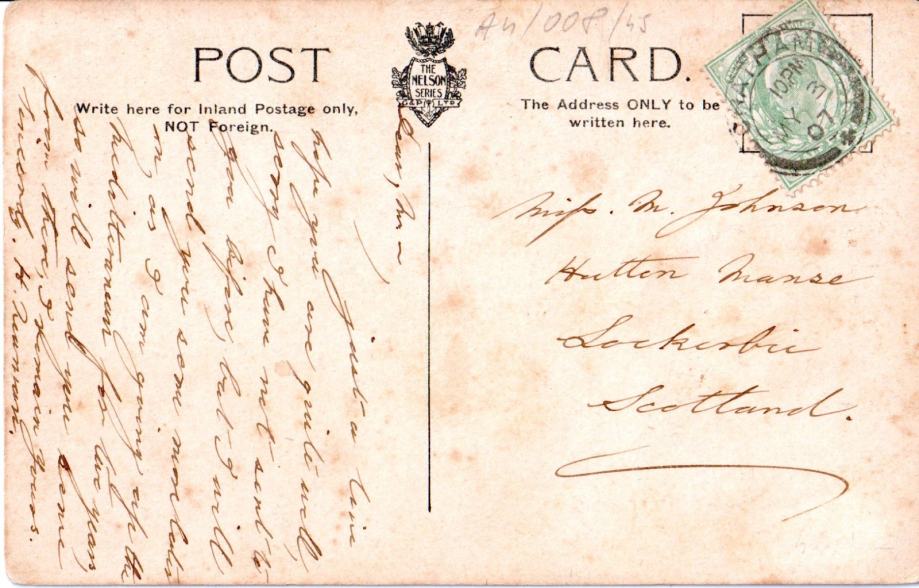 An/008/45
POST CARD.
THE
NELSON
SERIES
G.D.&D. LTD.
Write here for Inland Postage only,
NOT Foreign.
The Address ONLY to be
written here.
CHATHAM
10 PM
MY 3
07
Miss. M. Johnson
Hutton Manse
Lockerbie
Scotland.
Dear, M
Just a line
hope you are quite well
sorry I have not sent to
you before, but I will
send you some more later
on, as I am going up the
Mediterranean for two years,
so will send you some
from there, I remain yours.
Sincerely. H.